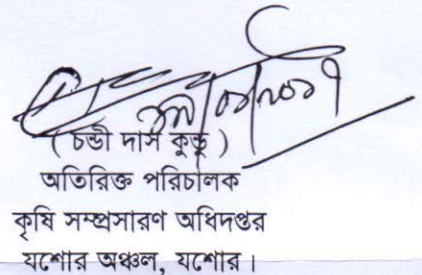 (চন্ডী দাস কুন্ডু)
অতিরিক্ত পরিচালক
কৃষি সম্প্রসারণ অধিদপ্তর
যশোর অঞ্চল, যশোর।